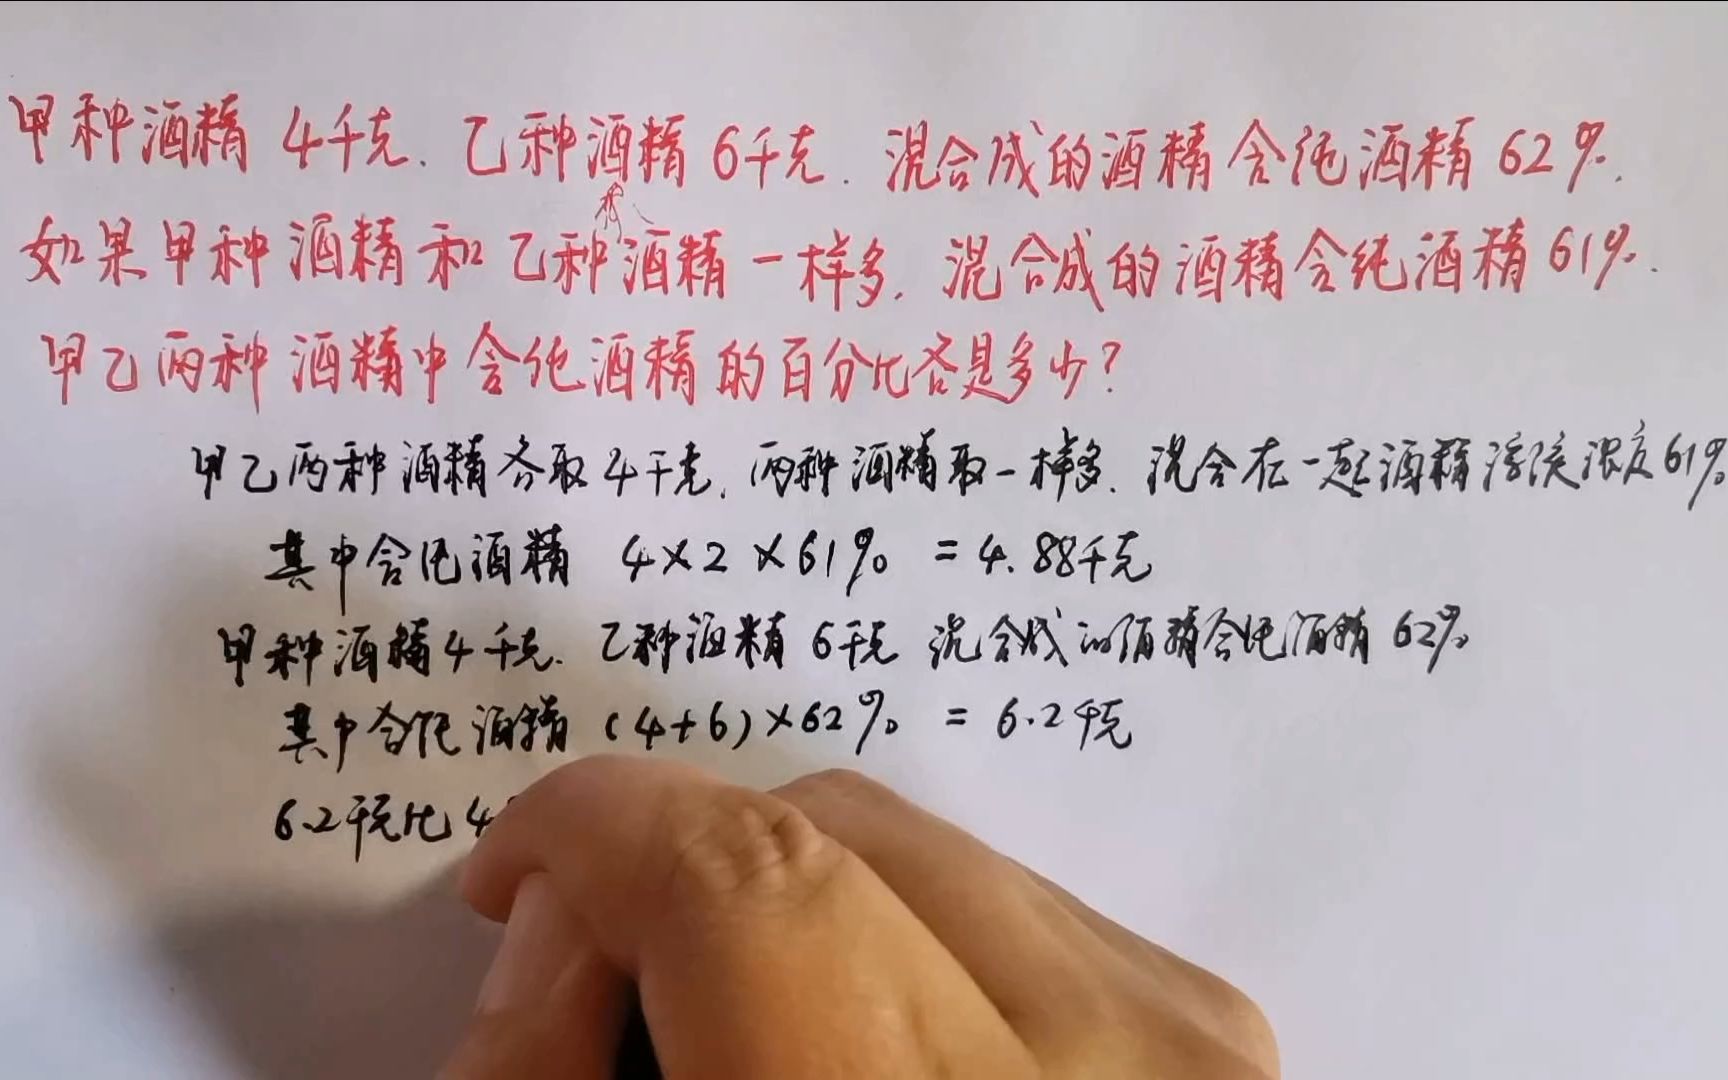 甲种酒精4千克.乙种酒精6千克.混合成的酒精含纯酒精62%.
如果甲种酒精和乙种酒精一样多.混合成的酒精含纯酒精61%.
甲乙两种酒精中含纯酒精的百分比各是多少?
甲乙两种酒精各取4千克.两种酒精取一样多.混合在一起酒精溶液浓度61%
其中含纯酒精 4×2×61% =4.88千克
甲种酒精4千克.乙种酒精6千克 混合成的酒精含纯酒精62%
其中含纯酒精(4+6)×62% =6.2千克
6.2千克比4